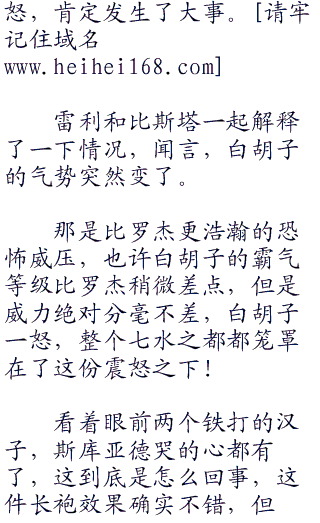 怒，肯定发生了大事。[请牢
记住域名
www.heihei168.com]
雷利和比斯塔一起解释
了一下情况，闻言，白胡子
的气势突然变了。
那是比罗杰更浩瀚的恐
怖威压，也许白胡子的霸气
等级比罗杰稍微差点，但是
威力绝对分毫不差，白胡子
一怒，整个七水之都都笼罩
在了这份震怒之下！
看着眼前两个铁打的汉
子，斯库亚德哭的心都有
了，这到底是怎么回事，这
件长袍效果确实不错，但